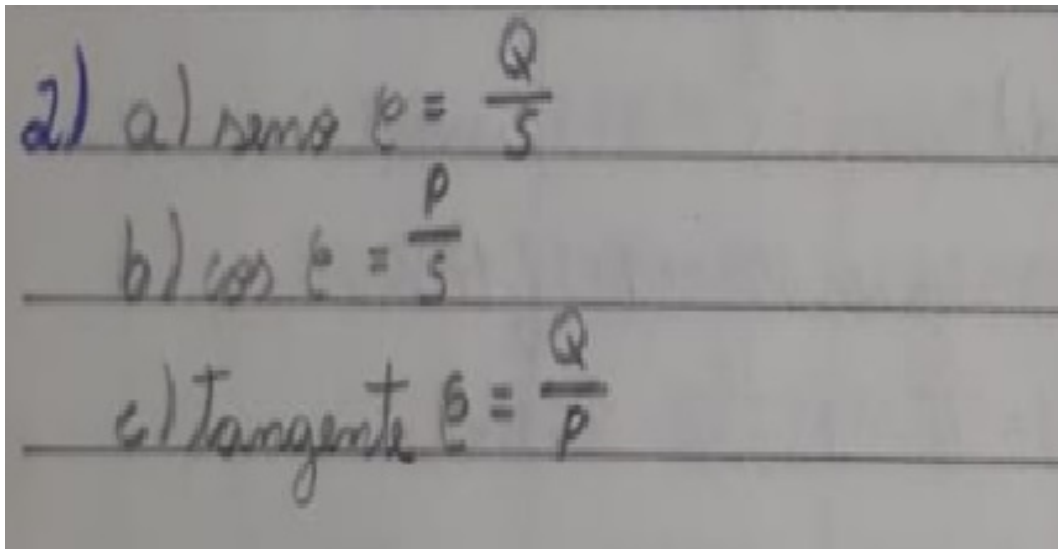 2) a) seno e = Q/S
b) cos e = P/S
c) Tangente e = Q/P